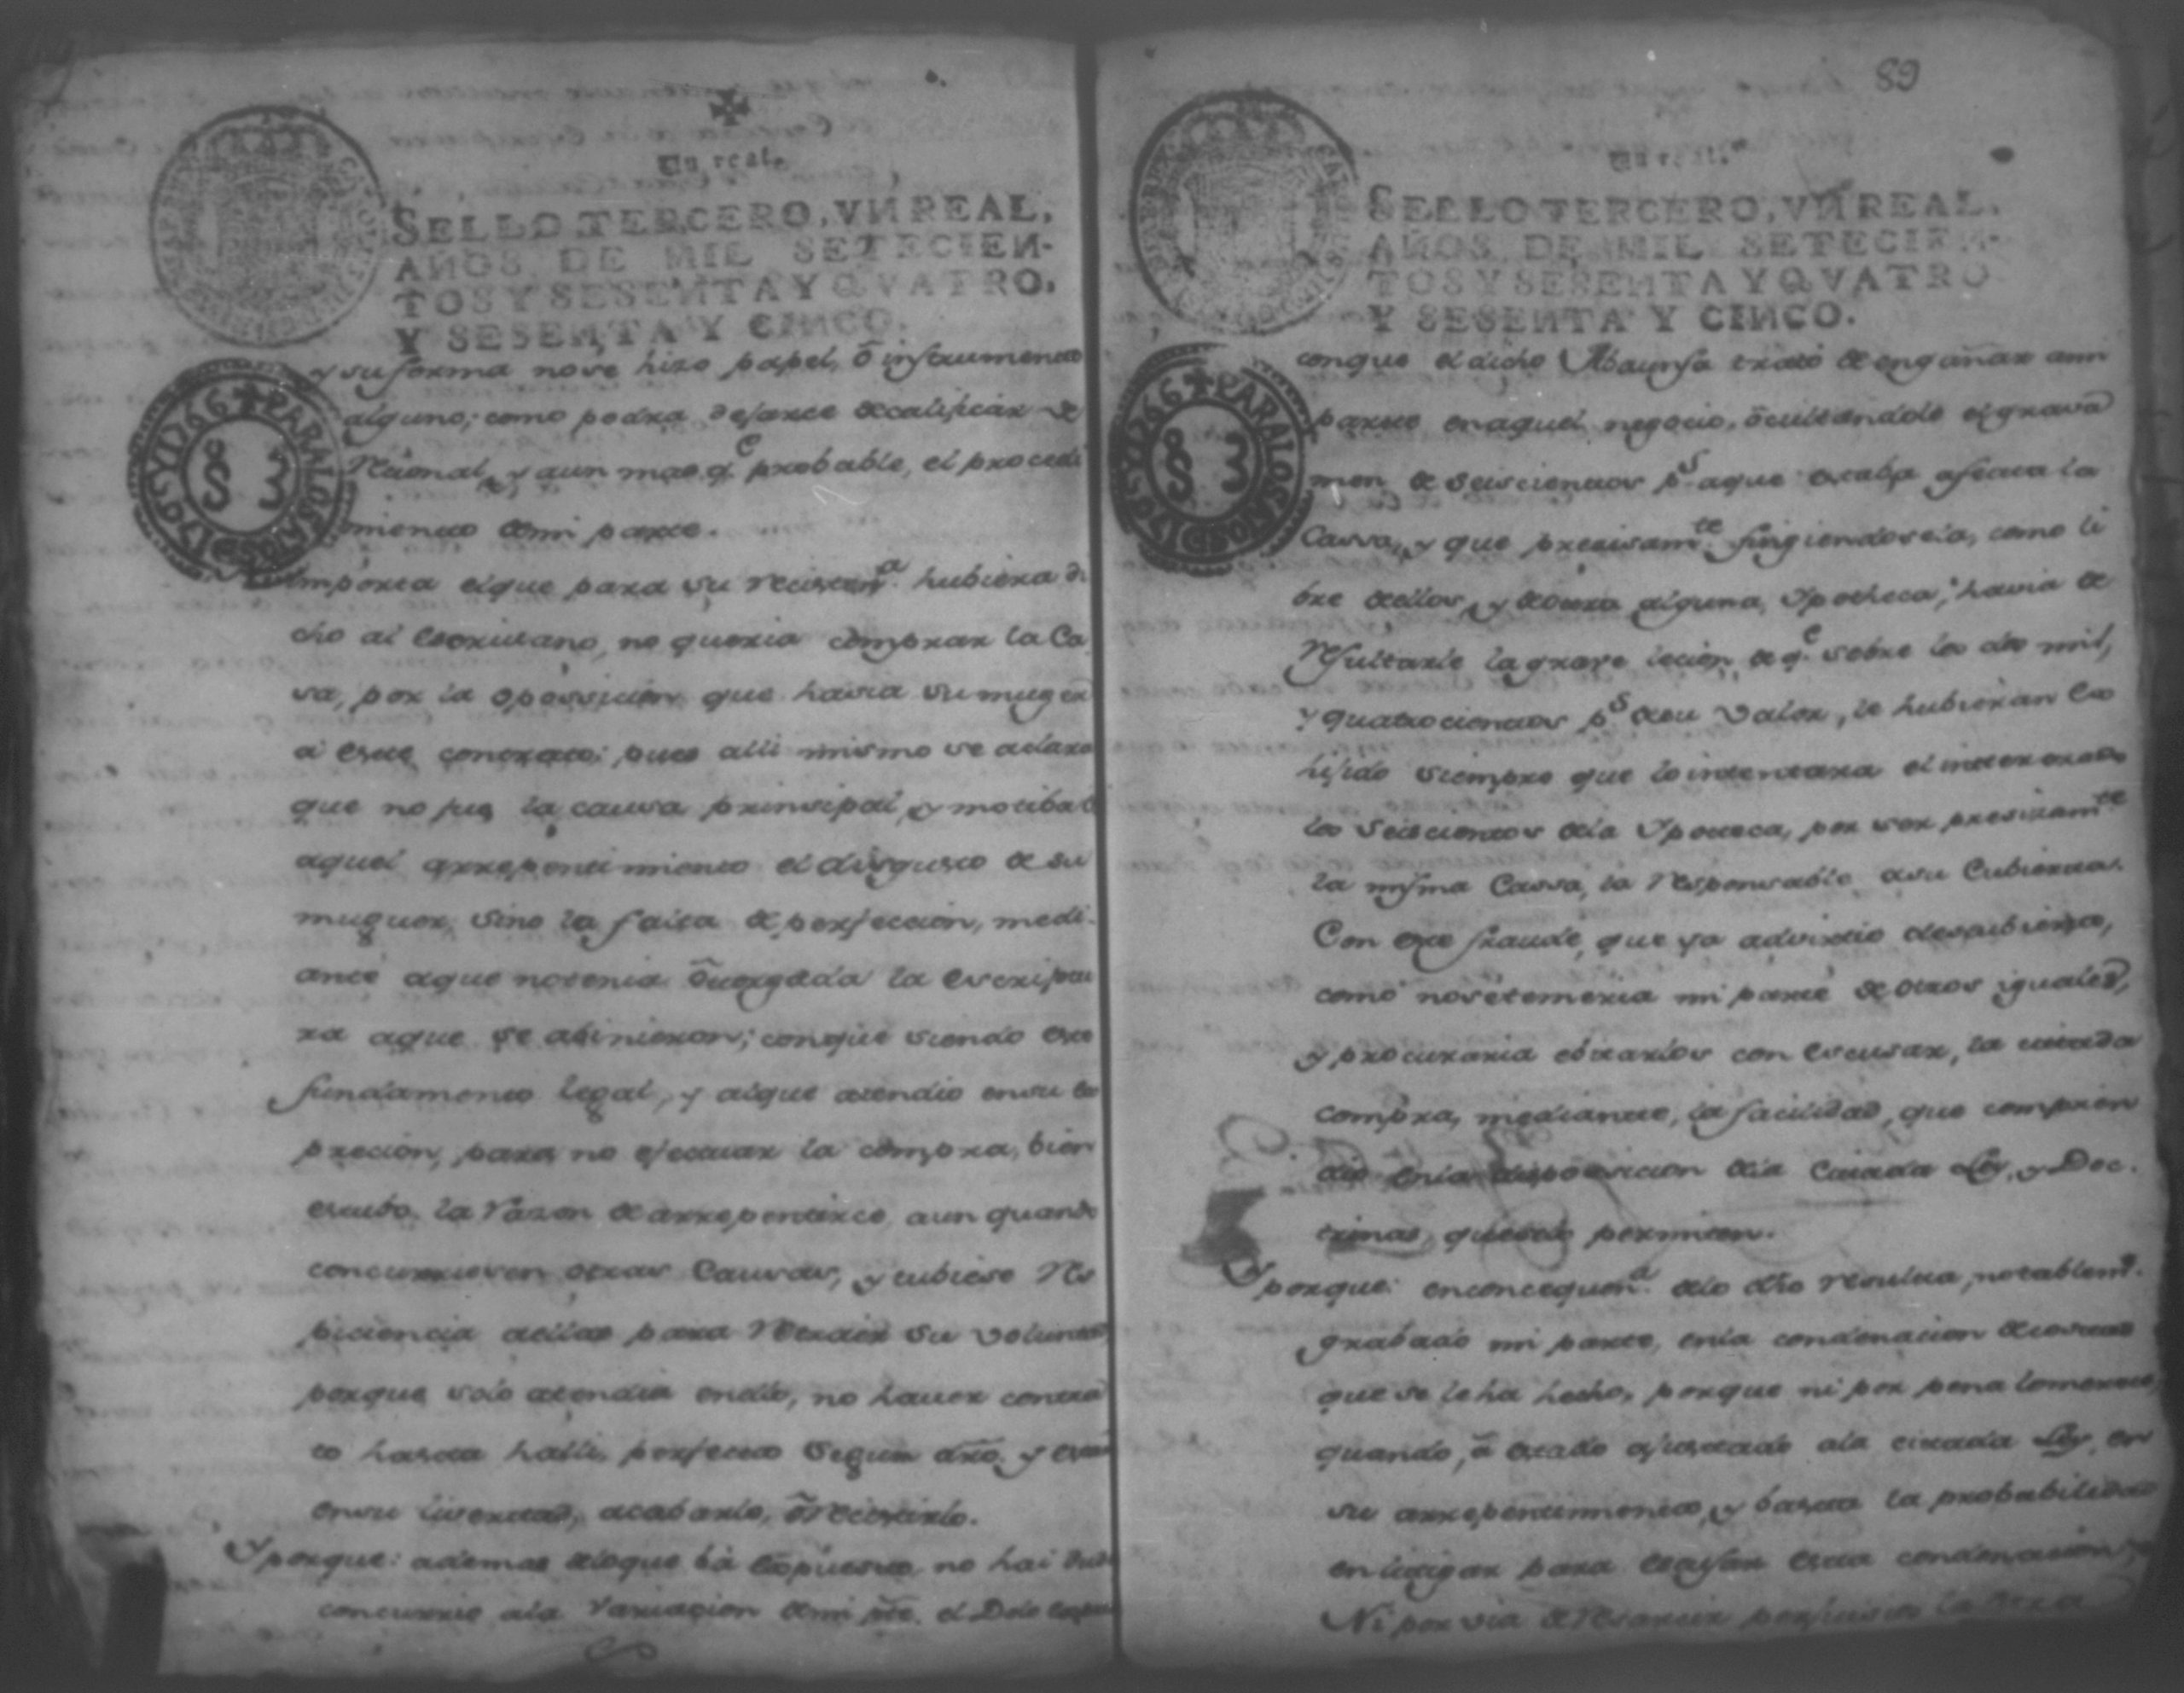 Un real.
SELLO TERCERO, VN REAL,
AÑOS DE MIL SETECIEN-
TOS Y SESENTA Y QVATRO,
Y SESENTA Y CINCO.
PARA LOS AÑOS D 1765 Y 1766
S 3
y su forma no se hizo papel, ō instrumento
alguno; como podra dejarce de calificar de
Racional, y aun mas q.e probable, el procedi
miento de mi parte.
importa el que para su recisten.a hubiera di
cho al Escrivano, no queria comprar la Ca
sa, por la oposision que hasia su muger
a este contrato; pues alli mismo se aclara
que no fue la causa prinsipal, y motiba
aquel arrepentimiento el disgusto de su
muguer, sino la falta de perfeccion, medi-
ante aque no tenia ōtorgada la escriptu
ra aque se abinieron; conque siendo este
fundamento legal, y al que atendio en su es
precion, para no efectuar la compra, bien
estubo la razon de arrepentirce, aun quando
concurriesen otras Causas, y tubiese Re
piciencia de ellas para Retraer su volunta
porque solo atendia en ello, no haver contra
to hasta halli, perfecto segun dr̄o, y estar
en su livertad, acabarlo, ō recistirlo.
Y porque: ademas de lo que bá Espuesto no hai
concurrio ala variacion de mi pt̄e. el Dolo
89
Un real.
SELLO TERCERO, VN REAL,
AÑOS DE MIL SETECIEN-
TOS Y SESENTA Y QVATRO
Y SESENTA Y CINCO.
PARA LOS AÑOS D 1765 Y 1766
S 3
conque el dicho Abaunsa trató de engañar ami
parte en aquel negocio, ōcultandole el grava
men de seiscientos p.s aque estaba afecta la
Cassa, y que precisam.te fingiendosela, como li
bre de ellos, y de otra alguna Ypotheca, havia de
Resultarle la grave lecion de q.e sobre los dos mil,
y quatrocientos p.s de su Valor, le hubieran Ex
hijido siempre que lo intentara el interesado
los seiscientos de la Ypoteca, por ser presisam.te
la misma Cassa, la Responsable asu Cubierta.
Con este fraude, que ya advirtio descubierto,
como no se temeria mi parte de otros iguales,
y procuraria ebitarlos con escusar, la citada
compra, mediante, la facilidad, que compren
dio en la disposicion de la Citada Ley, y Doc-
trinas, que selo permiten.
Y porque: en concequen.a de lo dh̄o resulta, notablem.te
grabado mi parte, en la condenacion de costas
que se le ha hecho, porque ni por pena lo merece
quando, a estado ajustado ala citada Ley, en
su arrepentimiento, y basta la probabilidad
en litigar para esta condenacion,
Ni por via de Resarcir perjuisios la otra